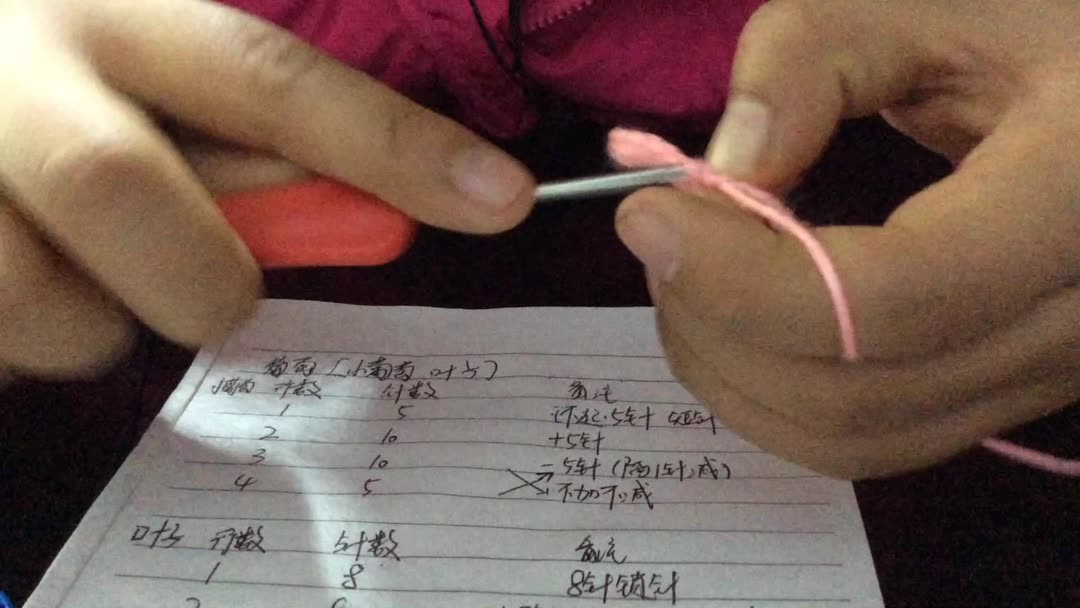 葡萄（小葡萄 叶子）
行数 针数 备注
1 5 环起5针 短针
2 10 +5针
3 10 -5针（隔1针，减）
4 5 不加不减
叶子 行数 针数 备注
1 8 8针锁针